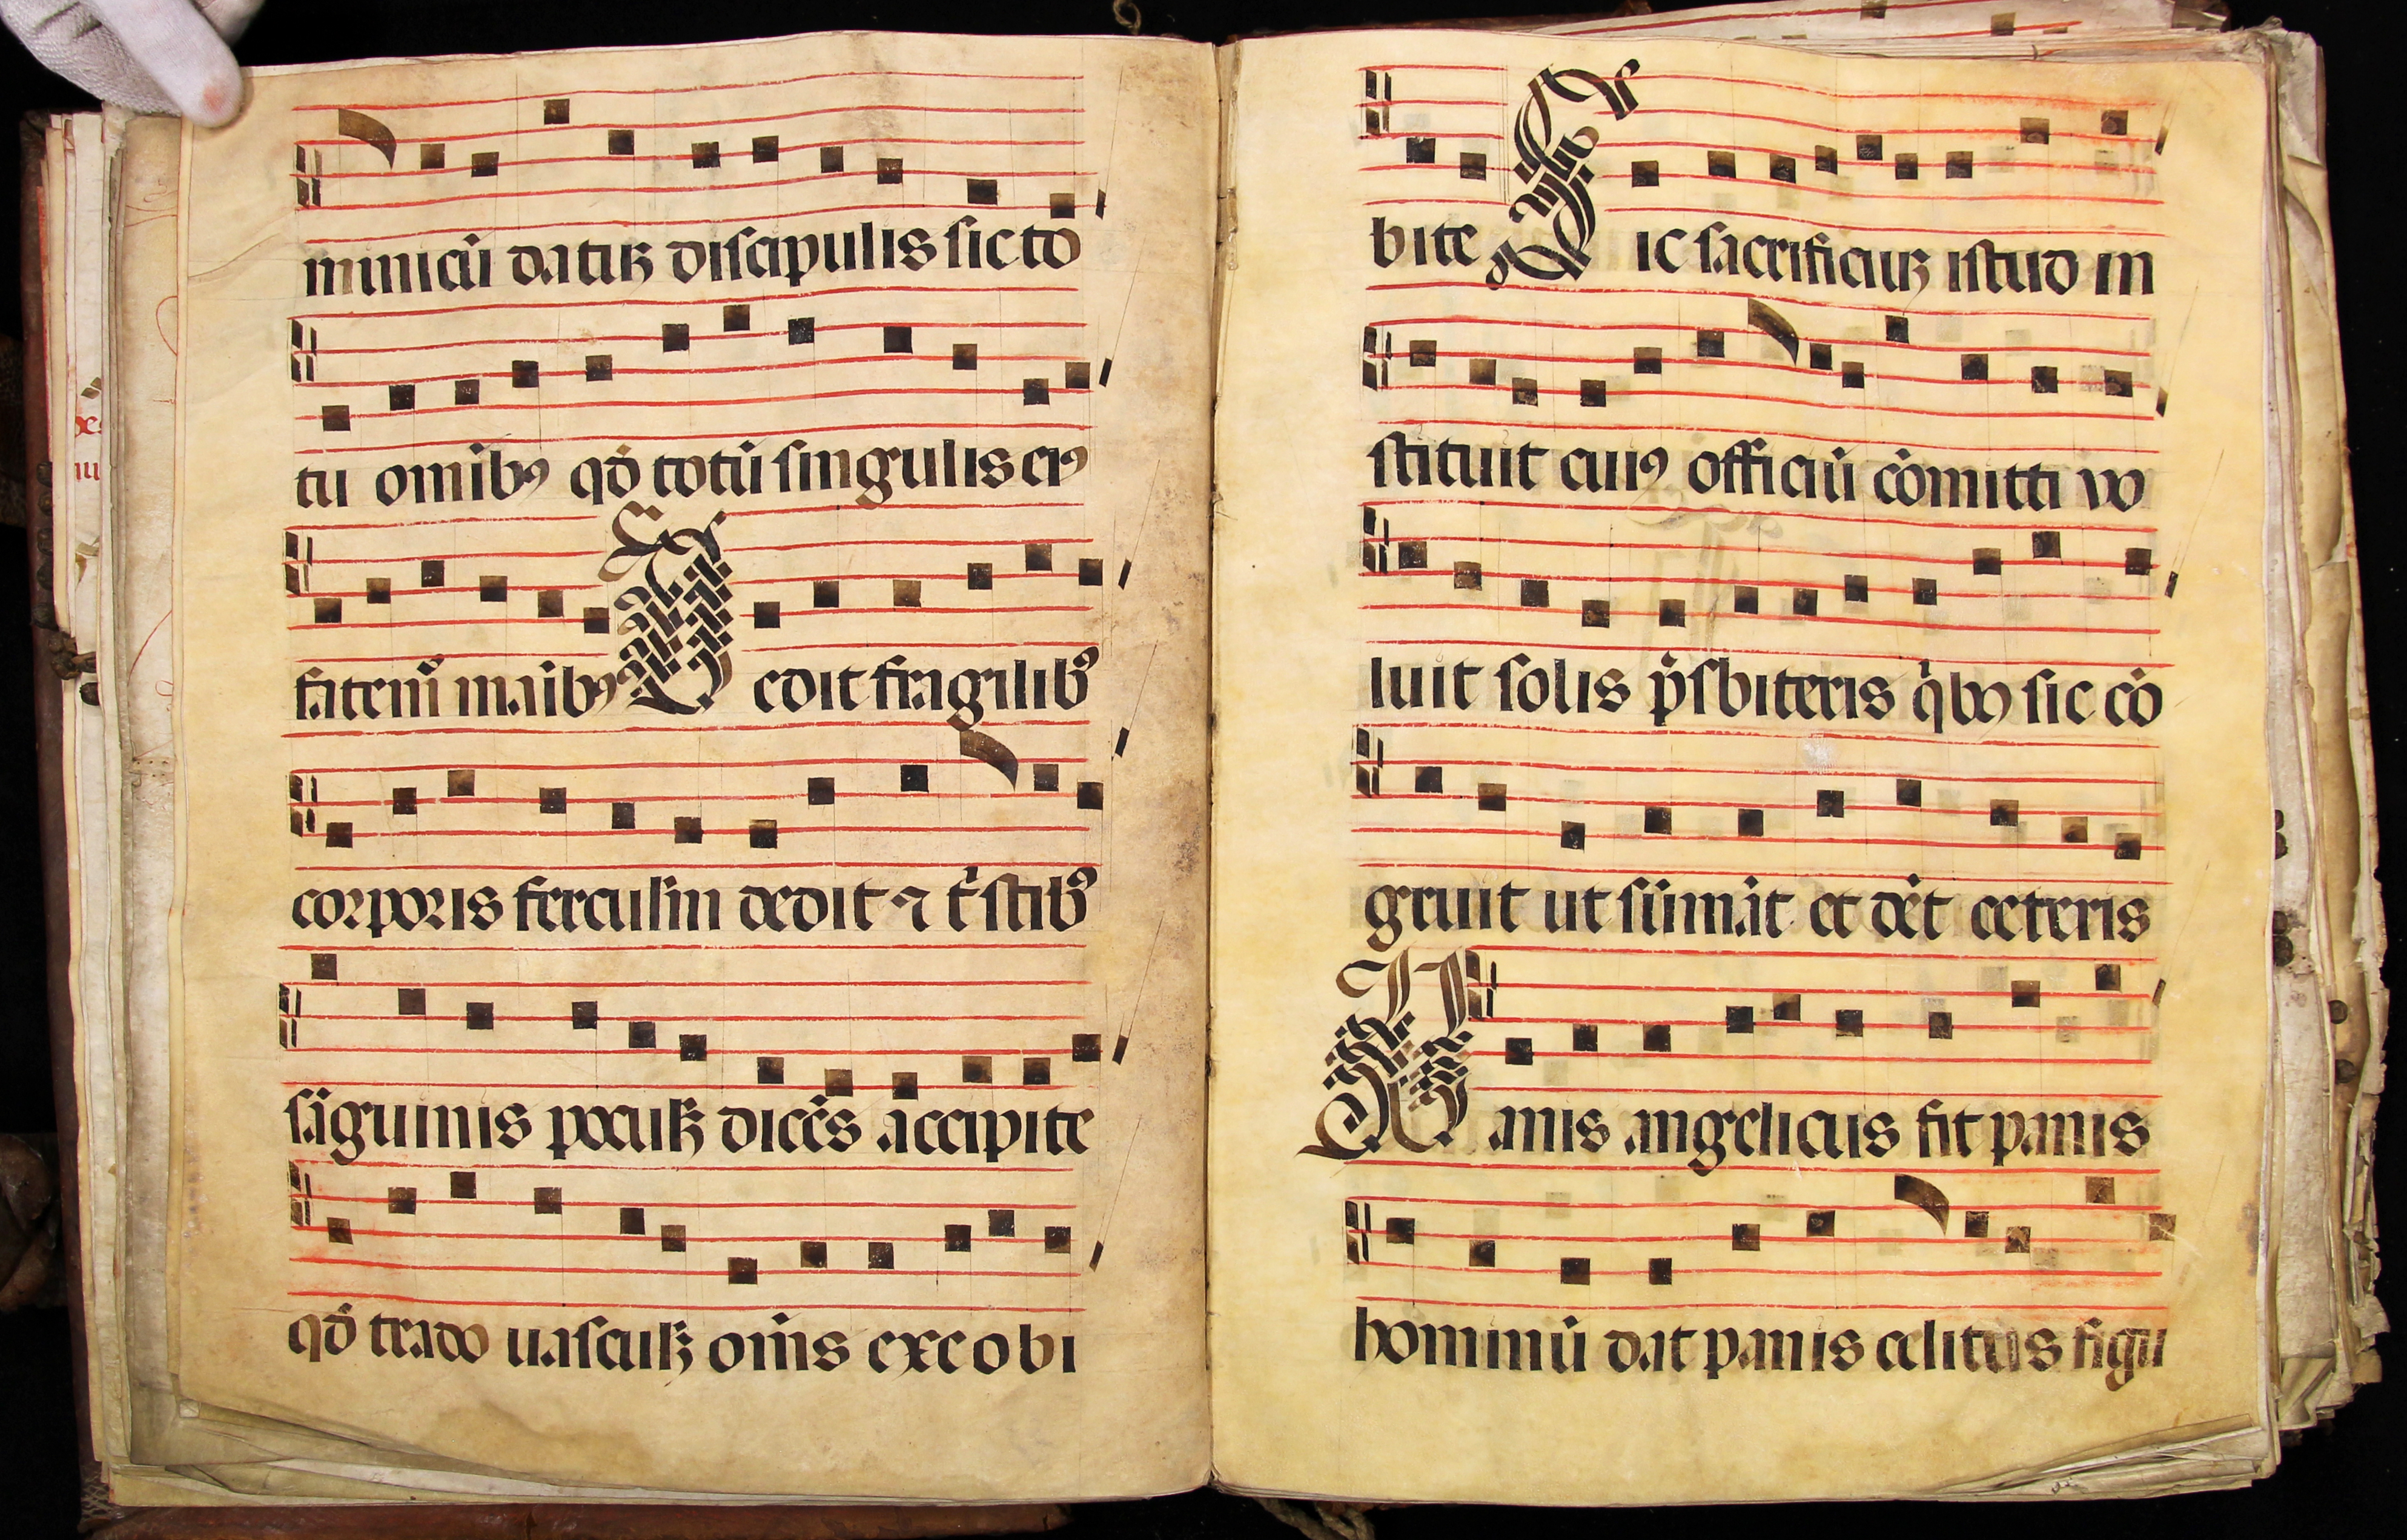 minicū datuꝫ discipulis sic to
tu omībꝰ qđ totū singulis eiꝰ
fatemᷣ maībꝰ Dedit fragilibꝰ
corporis ferculū dedit ⁊ tͥstibꝰ
sāguinis poculꝫ dicēs accipite
qđ trado uasculꝫ oms ex eo bi
bite Sic sacrificiuꝫ istud in
stituit cuiꝰ officiū cōmitti vo
luit solis p̄sbiteris qͥbꝰ sic cō
gruit ut sūmāt et dēt ceteris
Panis angelicus fit panis
hominū dat panis celitus figu